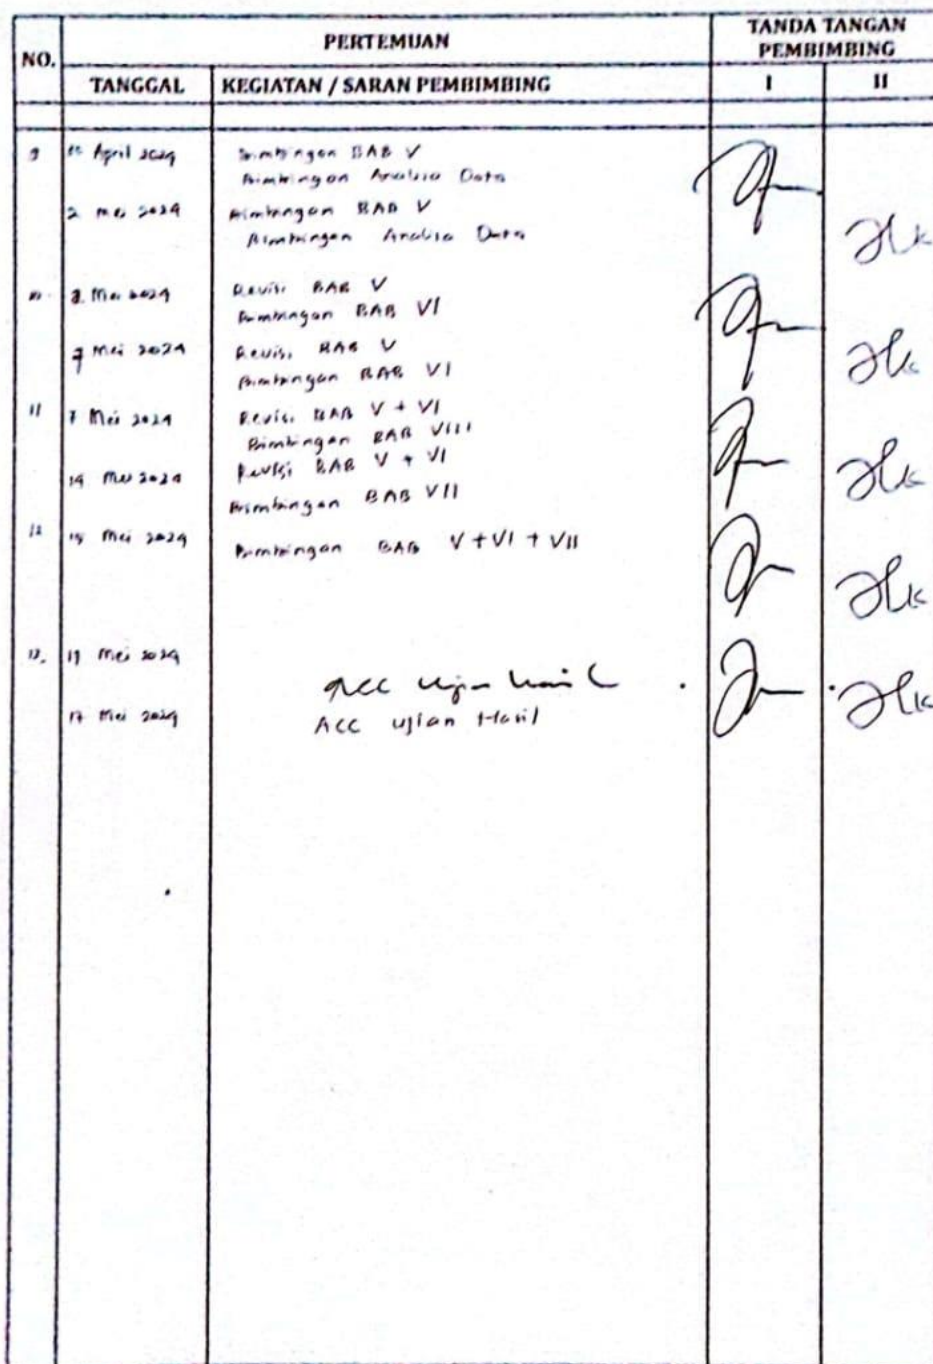 NO.
PERTEMUAN
TANDA TANGAN
PEMBIMBING
TANGGAL
KEGIATAN / SARAN PEMBIMBING
I
II
9
April 2024
Bimbingan BAB V
Bimbingan Analisa Data
2 mei 2024
Bimbingan BAB V
Bimbingan Analisa Data
10
Mei 2024
Revisi BAB V
Bimbingan BAB VI
7 Mei 2024
Revisi BAB V
Bimbingan BAB VI
11
7 Mei 2024
Revisi BAB V + VI
Bimbingan BAB VIII
14 Mei 2024
Revisi BAB V + VI
Bimbingan BAB VII
12
15 Mei 2024
Bimbingan BAB V + VI + VII
13.
17 Mei 2024
ACC Ujian Hasil
17 Mei 2024
ACC Ujian Hasil